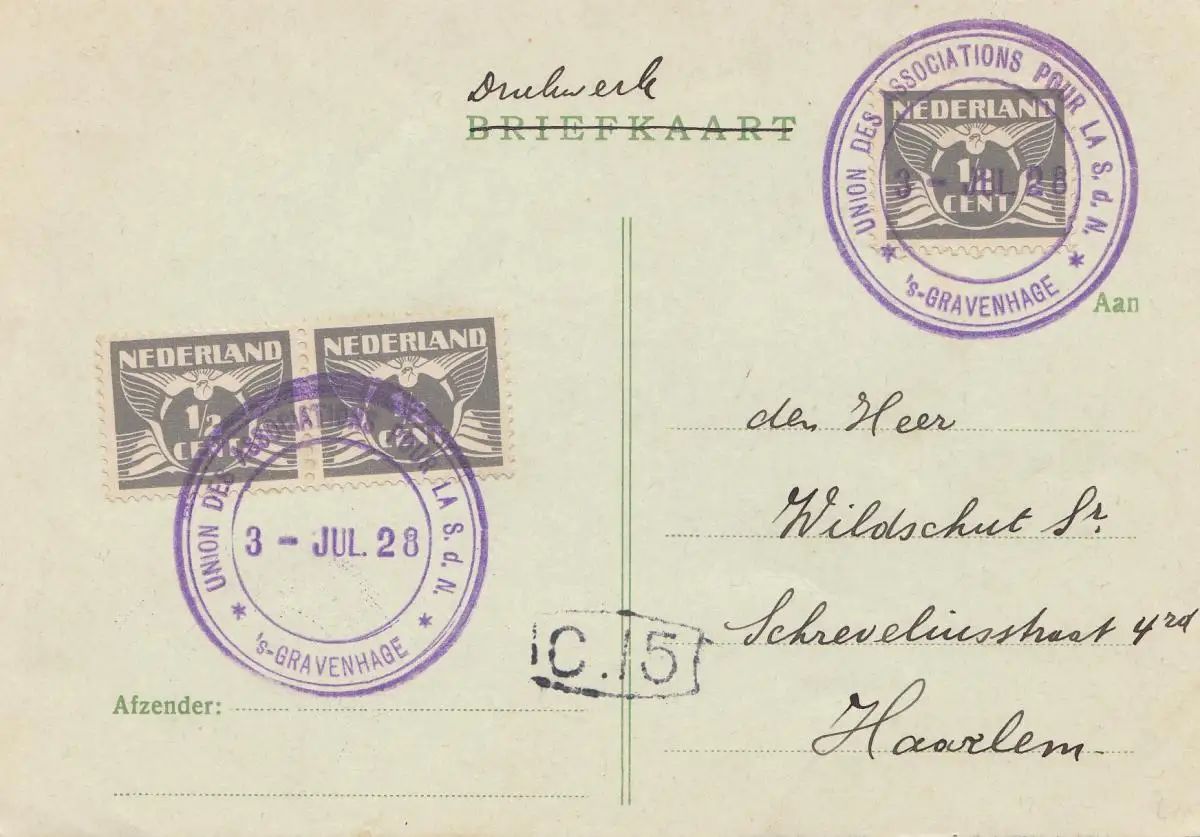 Drukwerk
BRIEFKAART
UNION DES ASSOCIATIONS POUR LA S. d. N.
NEDERLAND
1/2
CENT
3 - JUL. 28
* 's-GRAVENHAGE *
Aan
NEDERLAND
1/2
CENT
NEDERLAND
CENT
UNION DES ASSOCIATIONS POUR LA S. d. N.
3 - JUL. 28
* 's-GRAVENHAGE *
den Heer
Wildschut Sr.
C.15
Schreveliusstraat 4rd
Afzender:
Haarlem